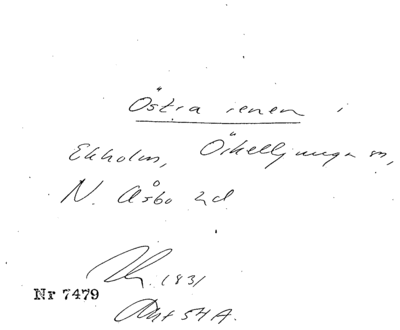 Östra renen i
Ekholm, Örkelljunga sn,
N. Åsbo hd
1831
Nr 7479